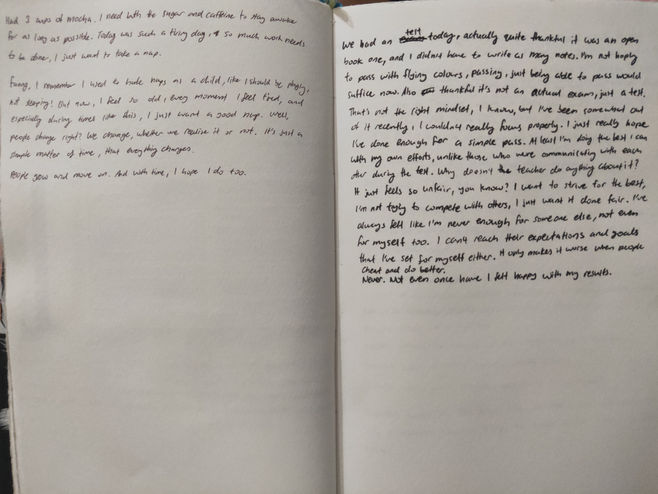 Had 3 cups of mocha. I need both the sugar and caffeine to stay awake
for as long as possible. Today was such a tiring day, & so much work needs
to be done, I just want to take a nap.
Funny, I remember I used to hate naps as a child, like I should be playing,
not sleeping! But now, I feel so old, every moment I feel tired, and
especially during times like this, I just want a good nap. Well,
people change right? We change, whether we realise it or not. It's just a
simple matter of time, that everything changes.
People grow and move on. And with time, I hope I do too.
We had an test today, actually quite thankful it was an open
book one, and I didn't have to write as many notes. I'm not hoping
to pass with flying colours, passing, just being able to pass would
suffice now. Also thankful it's not an actual exam, just a test.
That's not the right mindset, I know, but I've been somewhat out
of it recently, I couldn't really focus properly. I just really hope
I've done enough for a simple pass. At least I'm doing the best I can
with my own efforts, unlike those who were communicating with each
other during the test. Why doesn't the teacher do anything about it?
It just feels so unfair, you know? I want to strive for the best,
I'm not trying to compete with others, I just want it done fair. I've
always felt like I'm never enough for someone else, not even
for myself too. I can't reach their expectations and goals
that I've set for myself either. It only makes it worse when people
cheat and do better.
Never. Not even once have I felt happy with my results.